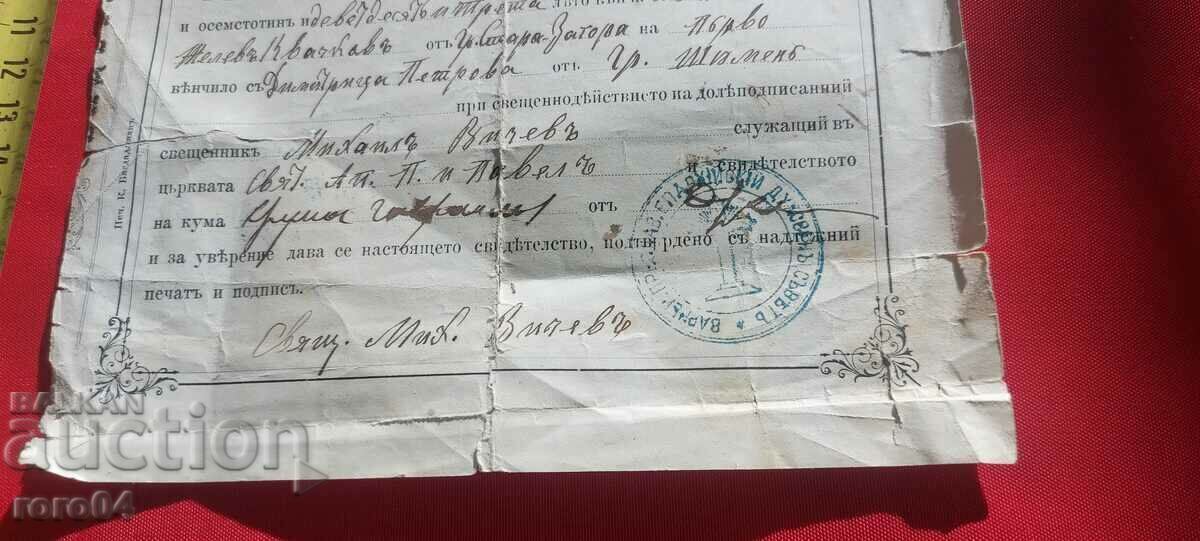 и осемстотинъ и деветдесятъ и трета лѣто
Желевъ Квачковъ отъ Гр. Стара-Загора на първо
вѣнчило съ Димитрица Петрова отъ Гр. Шуменъ
при свещеннодѣйствието на долѣподписанний
свещенникъ Михаилъ Вичевъ служащий въ
църквата Свят. Ап. П. и Павелъ и свидѣтелството
на кума отъ
и за увѣрение дава се настоящето свидѣтелство, подтвърдено съ надлѣжний
печатъ и подпис.
Свящ. Мих. Вичевъ
ЕПАРХИЙСКИЙ ДУХОВЕНЪ СЪВѢТЪ * ВАРН
Печ. К.
11
12
13
14
BALKAN
auction
roro04